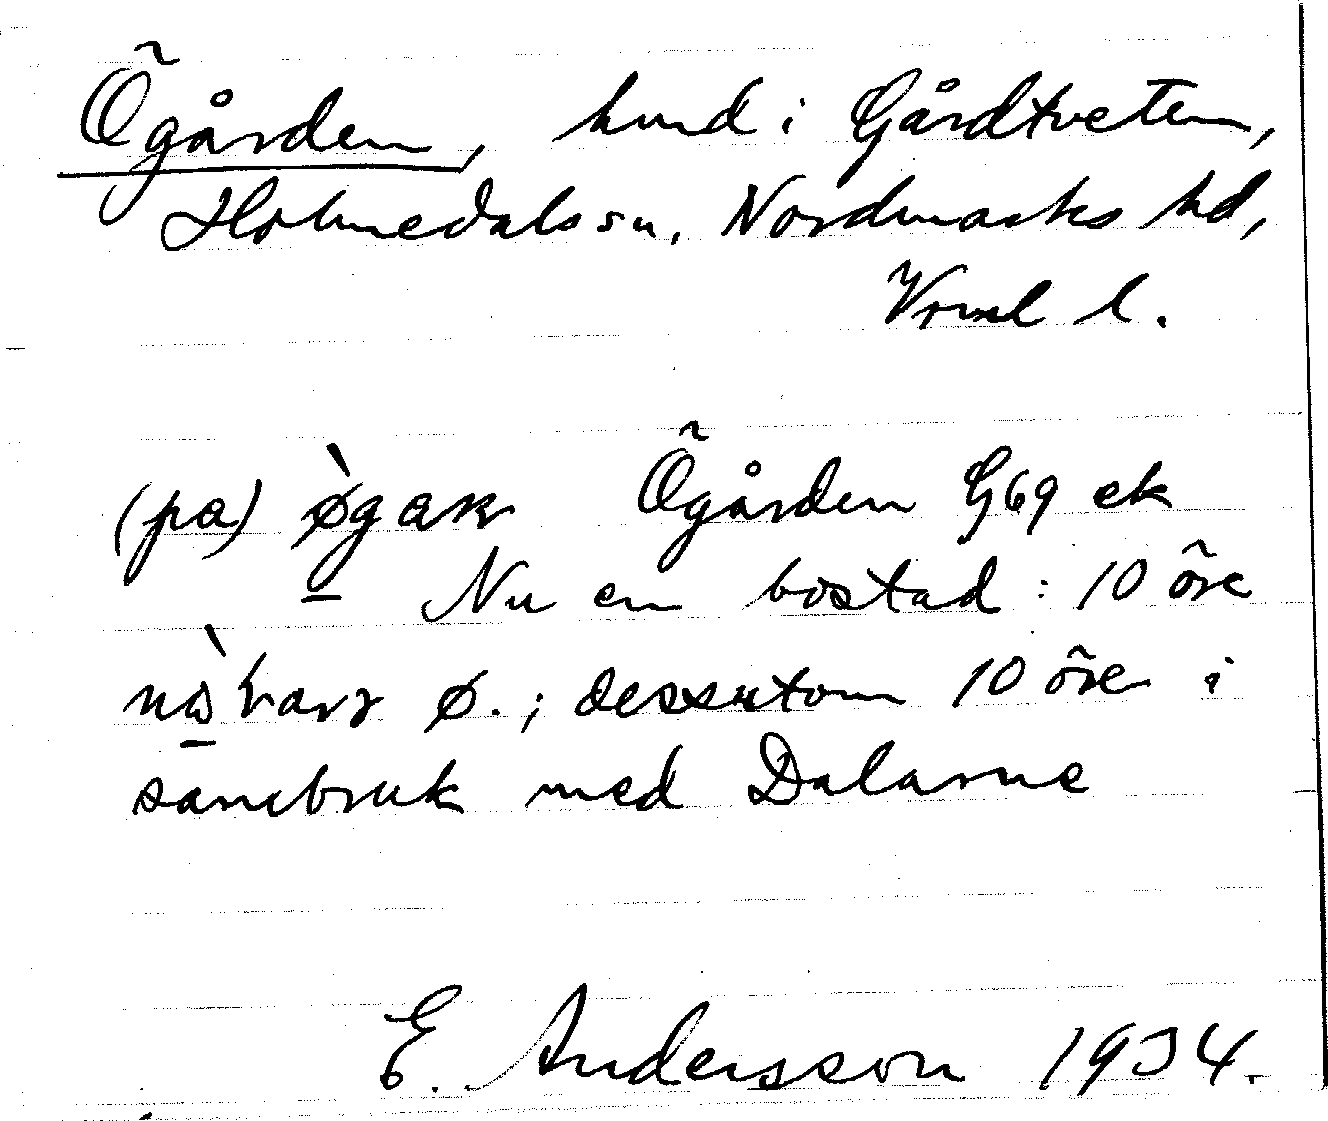 Ögården, hmd i Gårdtveten,
Holmedals sn, Nordmarks hd,
Vrml l.
(pa) øgaṛ Ögården G69 ek
Nu en bostad: 10 öre
ø.; dessutom 10 öre i
sambruk med Dalarne
E. Andersson 1934.